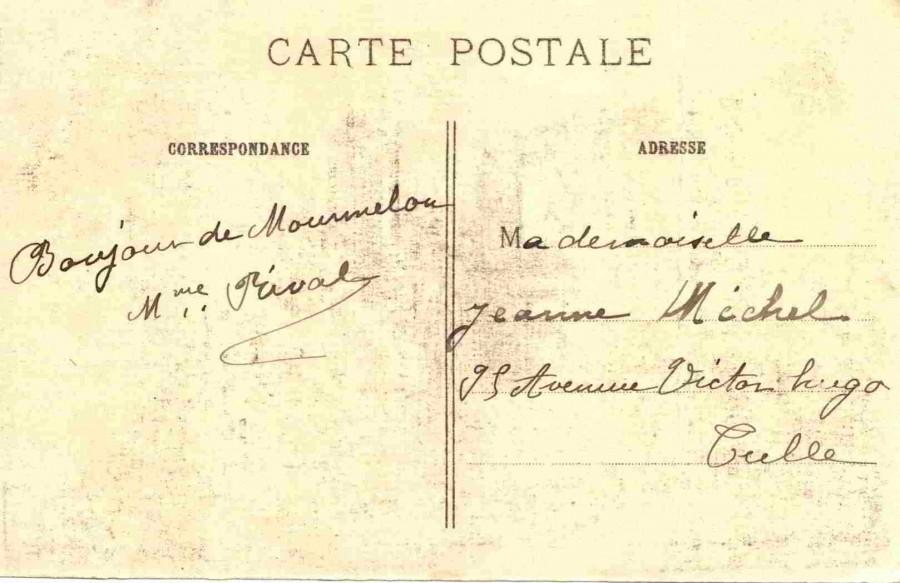 CARTE POSTALE
CORRESPONDANCE
Bonjour de Mourmelon
Mme Rival
ADRESSE
Mademoiselle
Jeanne Michel
95 Avenue Victor hugo
Tulle